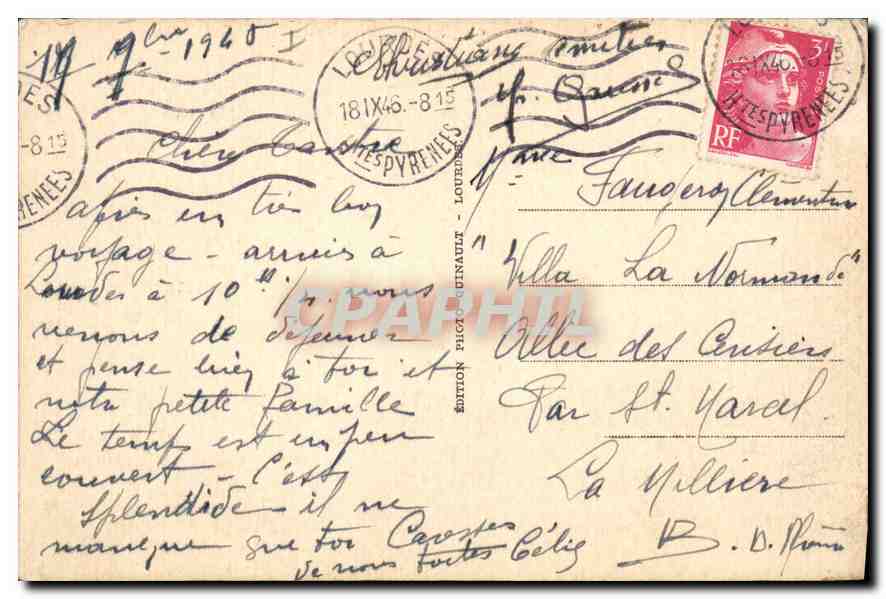 17 9bre 1946
Chère
après un très bon
voyage - arrivés à
Lourdes à 10H 1/4. nous
venons de déjeuner
et pense bien à toi et
notre petite famille
Le temps est un peu
couvert - C'est
splendide il ne
manque que toi
de nous toutes Célie
LOURDES
18 IX 46.-8 15
HTES PYRENEES
LOURDES
IX 46.-8 15
HTES PYRENEES
DES
-8 15
RENEES
3F
RF
amitiés
ÉDITION PHOTO QUINAULT - LOURDES
Clémentine
"Villa La Normande"
Allée des Cerisiers
Par St. Marcel.
La Millière
B. D. Rhône
CPAPHIL